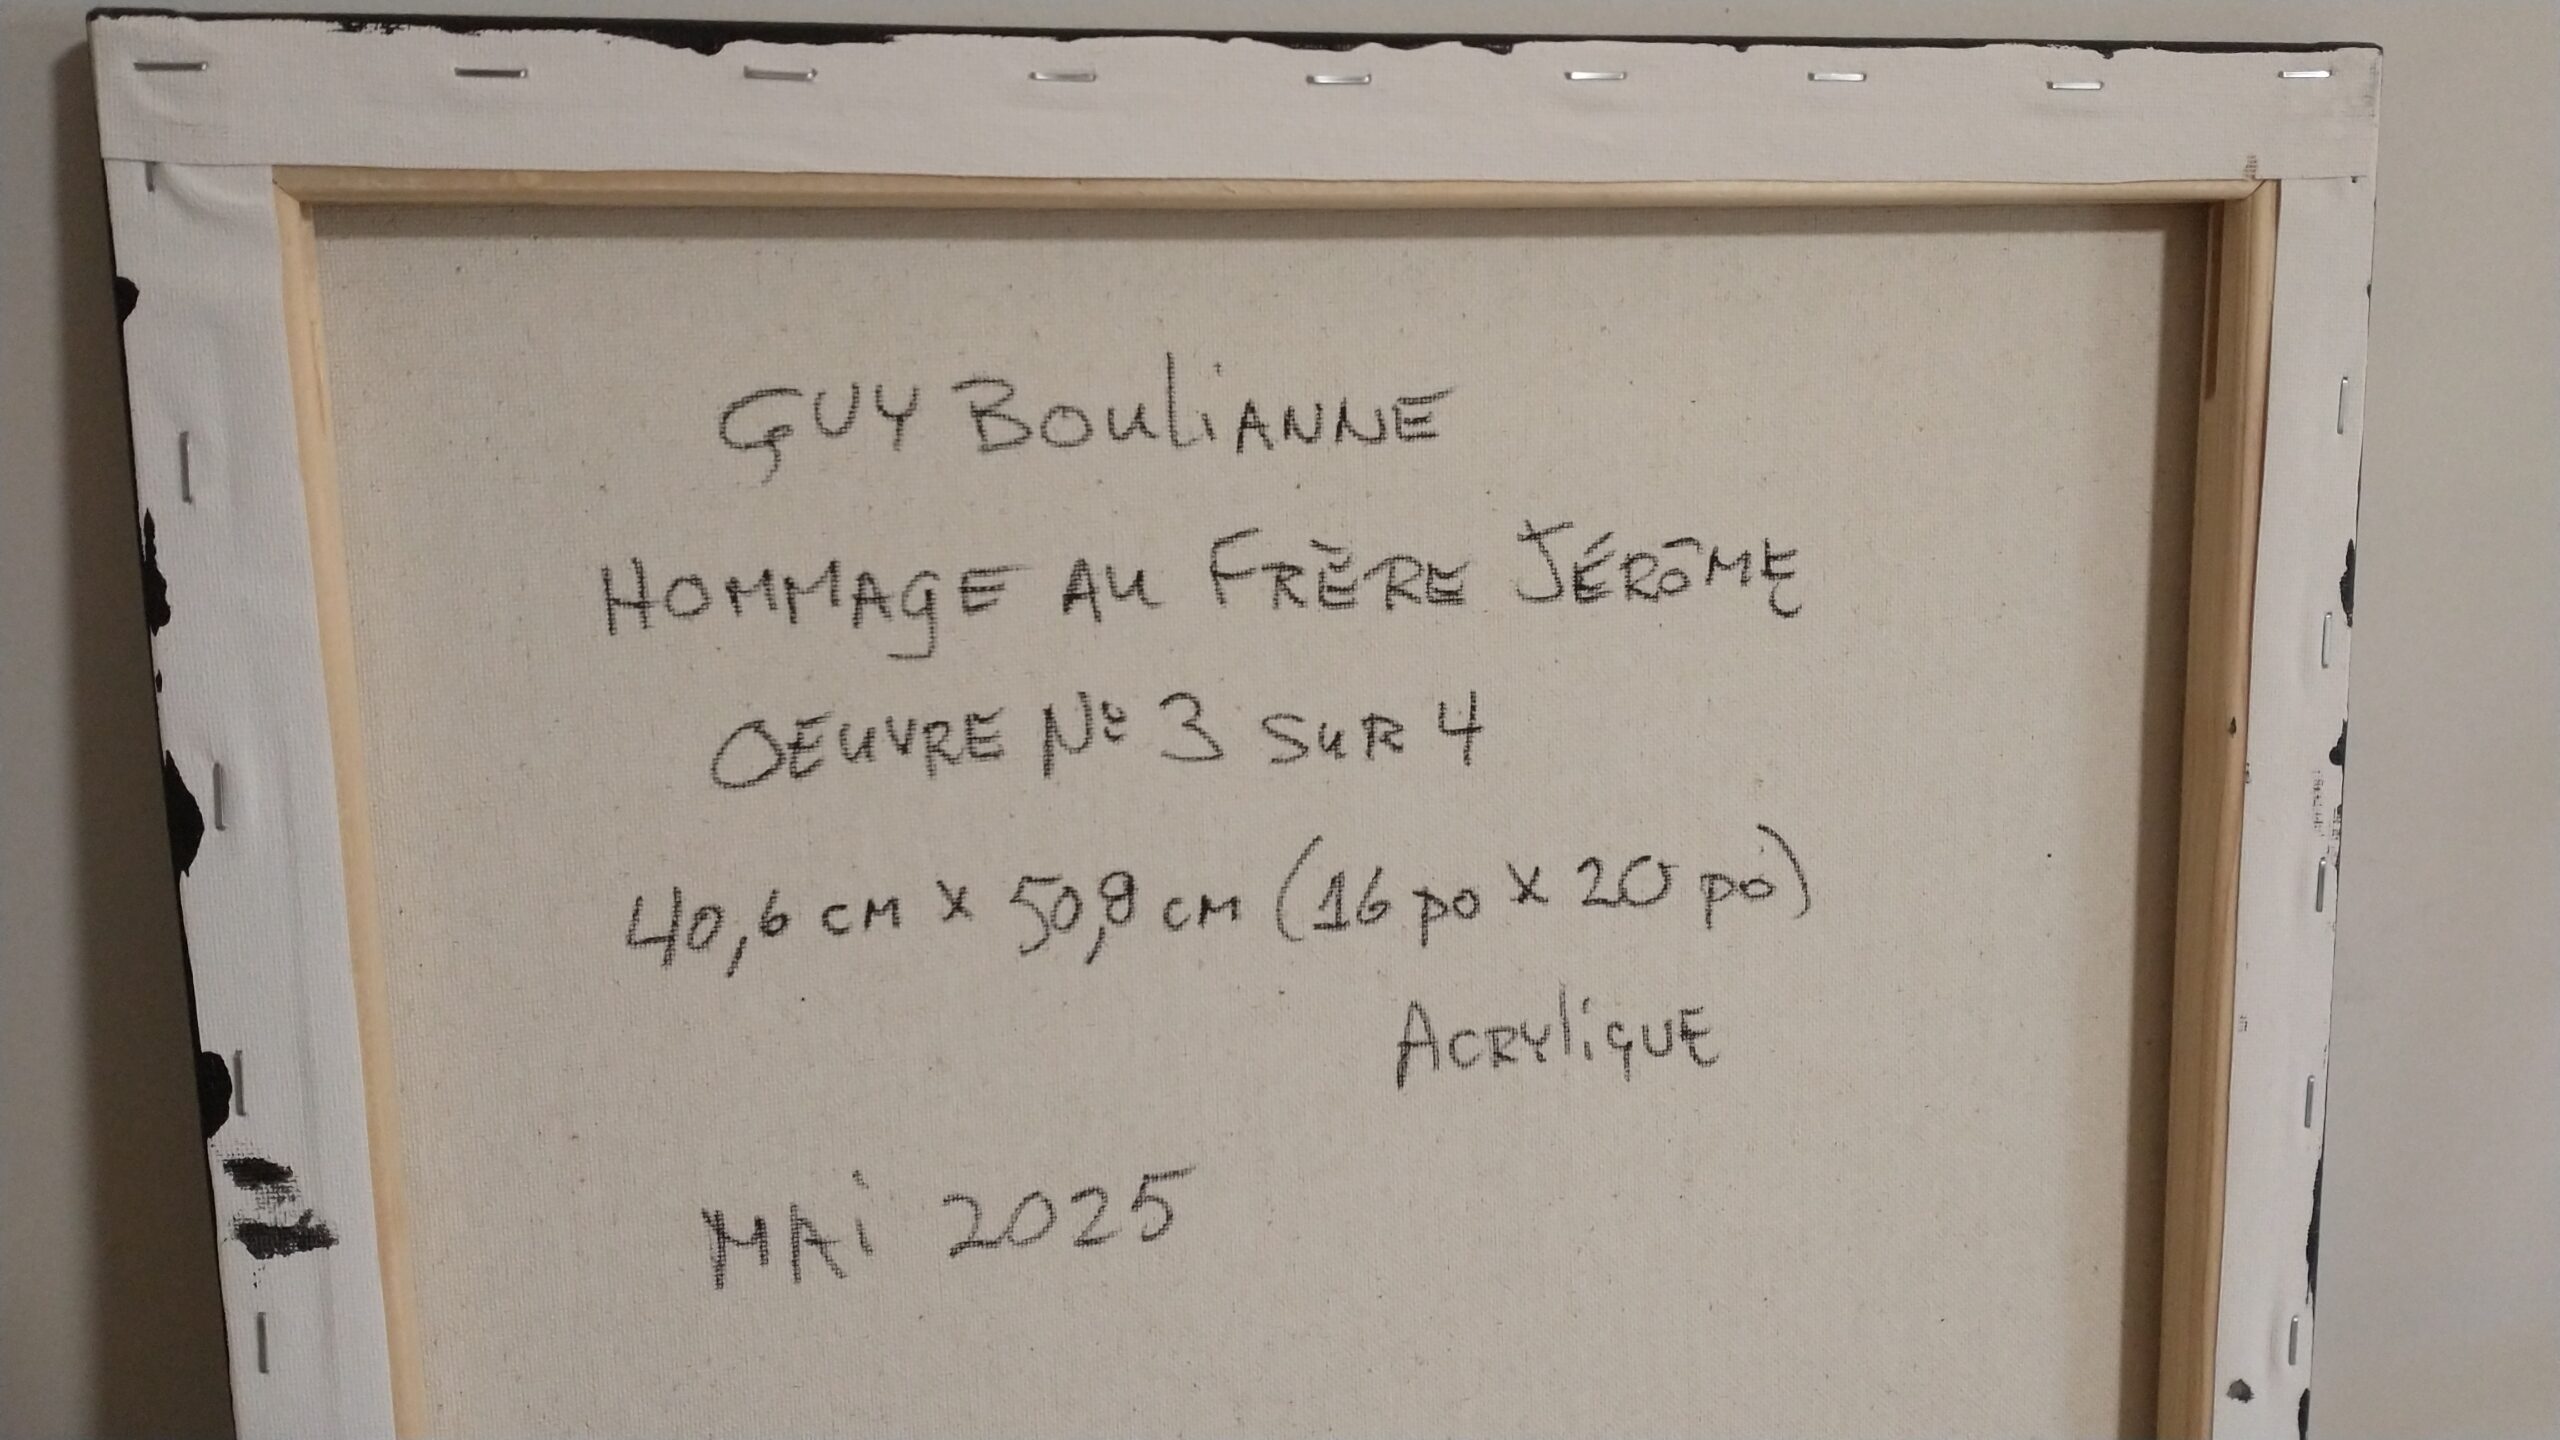 GUY BOULIANNE
HOMMAGE AU FRÈRE JÉRÔME
OEUVRE No 3 SUR 4
40,6 CM X 50,8 CM (16 po X 20 po)
ACRYLIQUE
MAI 2025